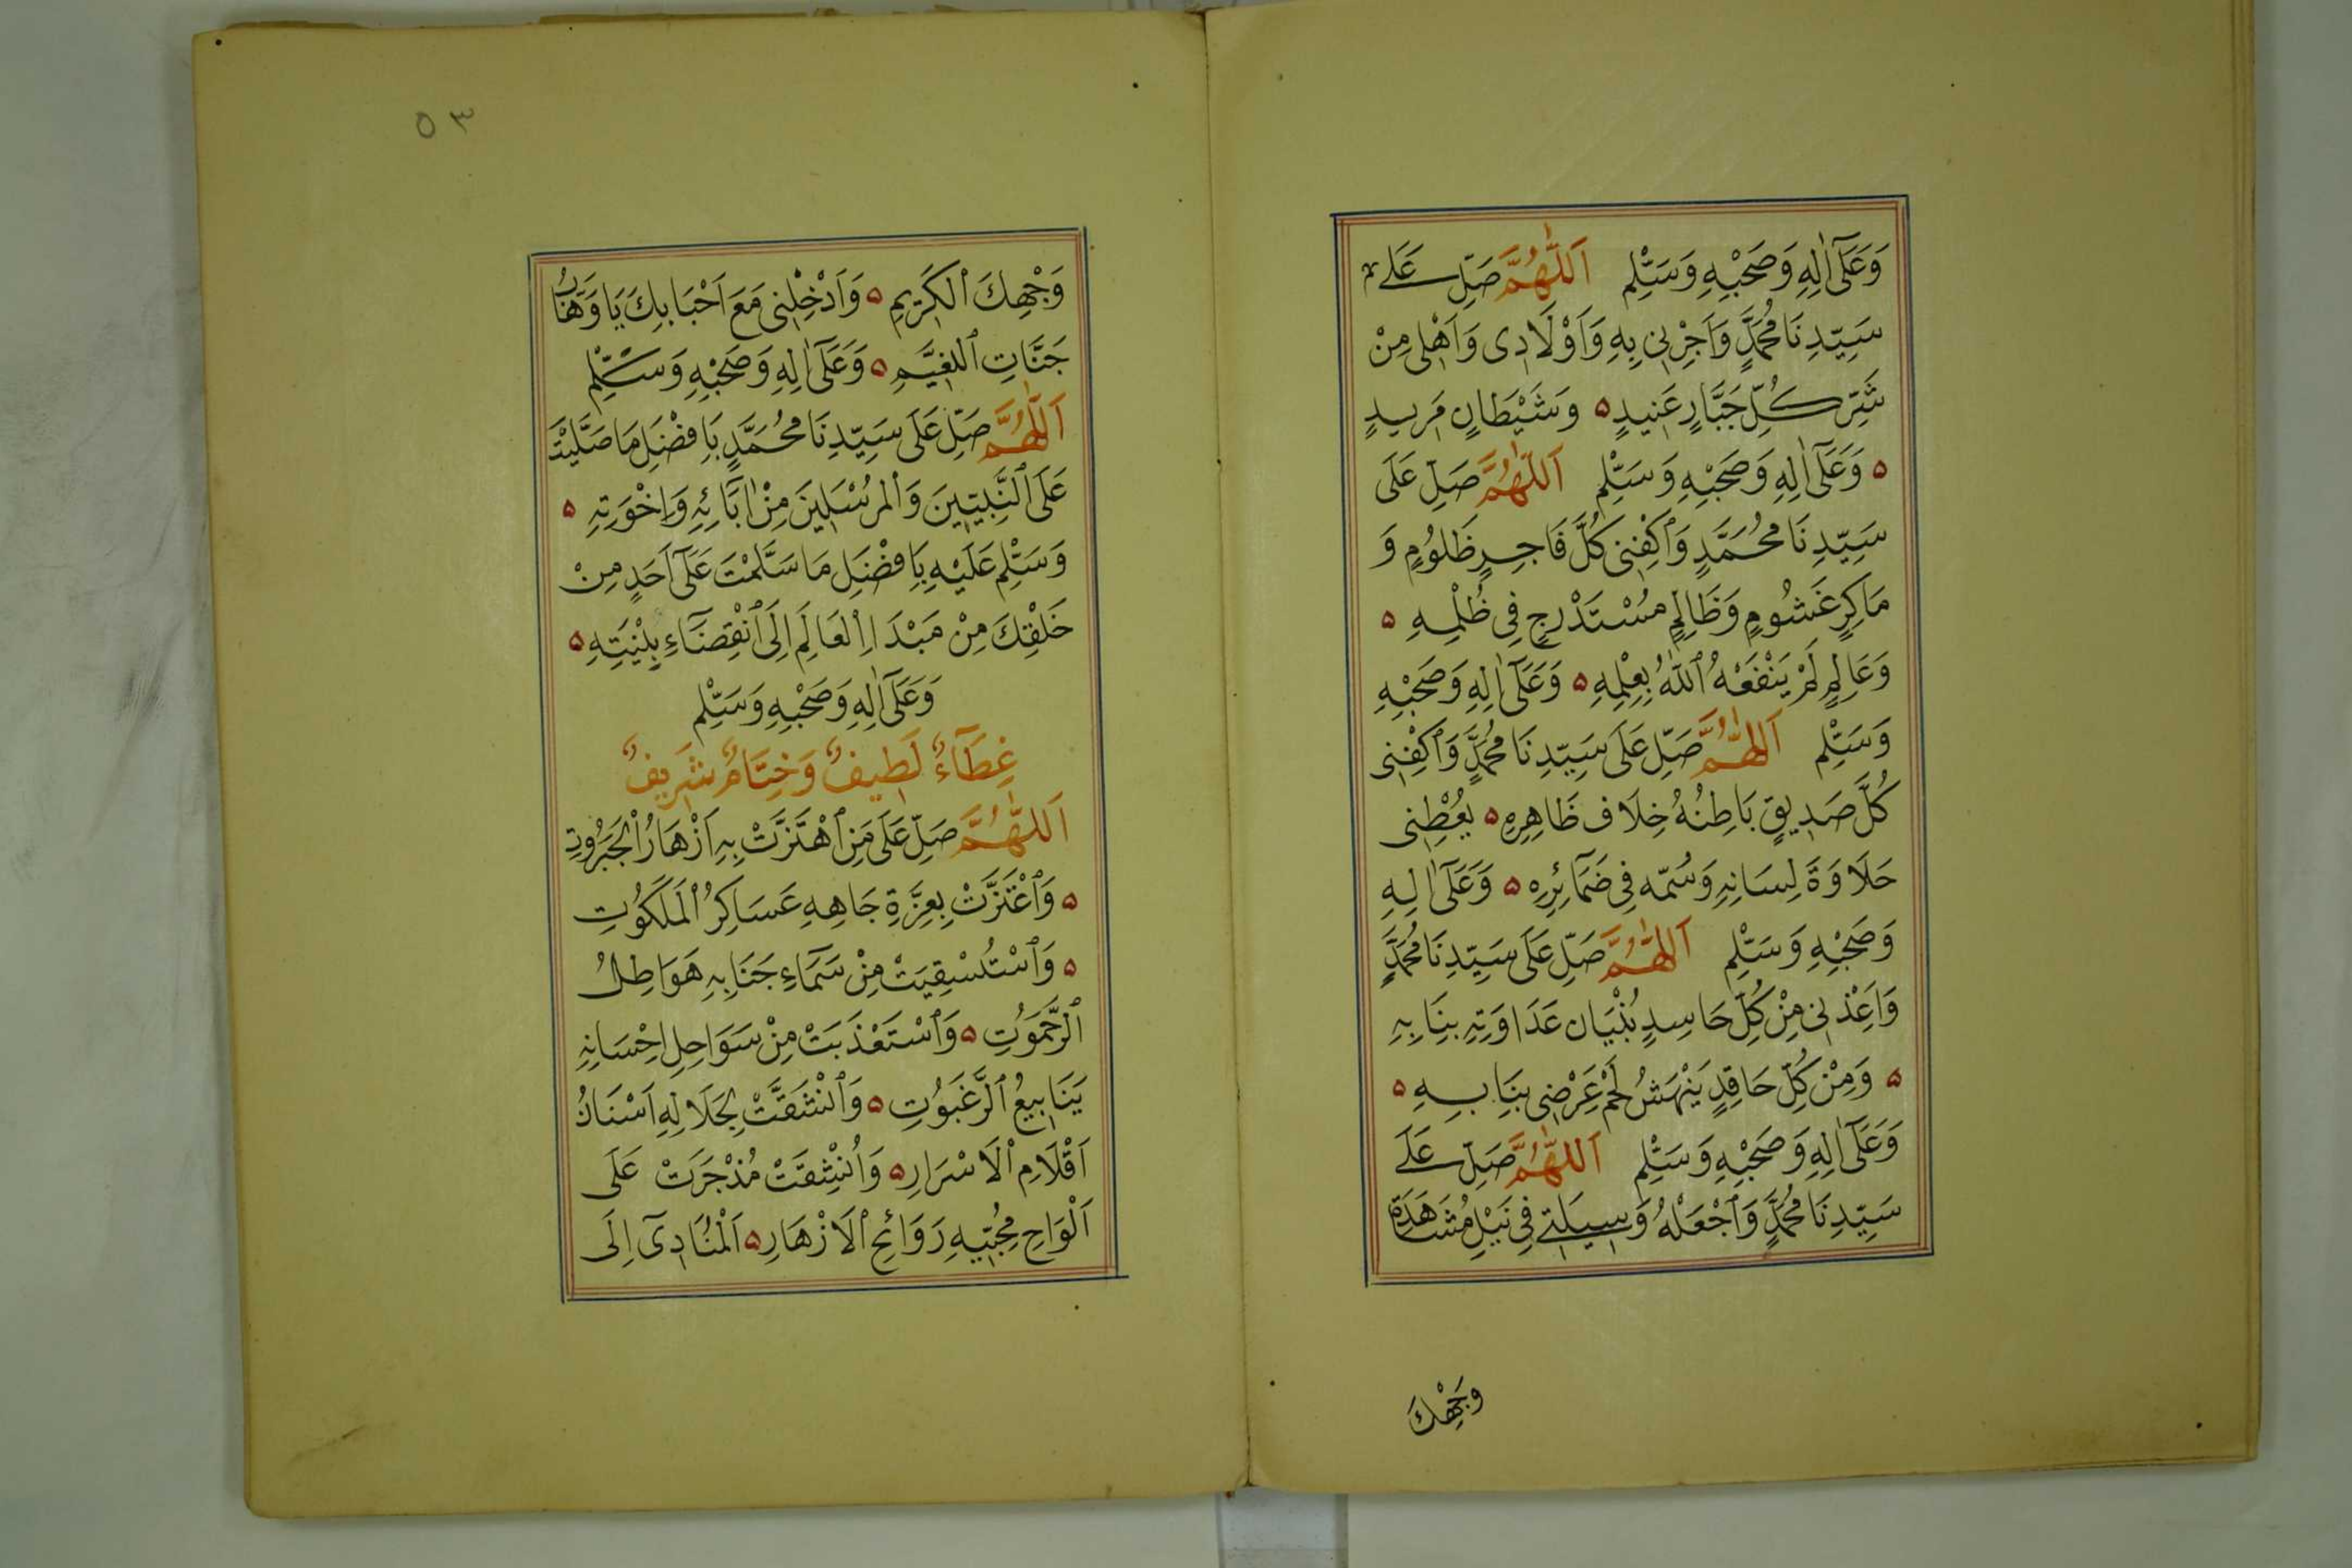 وَعَلَىٰ اٰلِهِ وَصَحْبِهِ وَسَلِّمْ اَللّٰهُمَّ صَلِّ عَلٰى
سَيِّدِنَا مُحَمَّدٍ وَاَجِرْنِى بِهِ وَاَوْلَادِى وَاَهْلِى مِنْ
شَرِّ كُلِّ جَبَّارٍ عَنِيدٍ ۵ وَشَيْطَانٍ مَرِيدٍ
۵ وَعَلَىٰ اٰلِهِ وَصَحْبِهِ وَسَلِّمْ اَللّٰهُمَّ صَلِّ عَلَى
سَيِّدِنَا مُحَمَّدٍ وَاكْفِنِى كُلَّ فَاجِرٍ ظَلُومٍ وَ
مَاكِرٍ غَشُومٍ وَظَالِمٍ مُسْتَدْرِجٍ فِى ظُلْمِهِ ۵
وَعَالِمٍ لَمْ يَنْفَعْهُ اللّٰهُ بِعِلْمِهِ ۵ وَعَلَىٰ اٰلِهِ وَصَحْبِهِ
وَسَلِّمْ اَللّٰهُمَّ صَلِّ عَلَى سَيِّدِنَا مُحَمَّدٍ وَاكْفِنِى
كُلَّ صَدِيقٍ بَاطِنُهُ خِلَاف ظَاهِرِهِ ۵ يُعْطِنِى
حَلَاوَةَ لِسَانِهِ وَسُمّه فِى ضَمَآئِرِهِ ۵ وَعَلَىٰ اٰلِهِ
وَصَحْبِهِ وَسَلِّمْ اَللّٰهُمَّ صَلِّ عَلَى سَيِّدِنَا مُحَمَّدٍ
وَاَعِذْنِى مِنْ كُلِّ حَاسِدٍ بُنْيَان عَدَاوَتِهِ بِنَابِهِ
۵ وَمِنْ كُلِّ حَاقِدٍ يَنْهَشُ لَحْمَ عِرْضِى بِنَابِهِ ۵
وَعَلَىٰ اٰلِهِ وَصَحْبِهِ وَسَلِّمْ اَللّٰهُمَّ صَلِّ عَلَى
سَيِّدِنَا مُحَمَّدٍ وَاجْعَلْهُ وَسِيلَتِى فِى نَيْلِ مُشَاهَدَةِ
وَجْهِكَ
۵۳
وَجْهِكَ الْكَرِيمِ ۵ وَاَدْخِلْنِى مَعَ اَحْبَابِكَ يَا وَهَّابُ
جَنَّاتِ النَّعِيمِ ۵ وَعَلَىٰ اٰلِهِ وَصَحْبِهِ وَسَلِّمْ
اَللّٰهُمَّ صَلِّ عَلَى سَيِّدِنَا مُحَمَّدٍ بَاِفْضَلِ مَا صَلَّيْتَ
عَلَى النَّبِيّينَ وَالْمُرْسَلِينَ مِنْ اٰبَآئِهِ وَاِخْوَتِهِ ۵
وَسَلِّمْ عَلَيْهِ بِاَفْضَلِ مَا سَلَّمْتَ عَلَىٰ اَحَدٍ مِنْ
خَلْقِكَ مِنْ مَبْدَاِ الْعَالَمِ اِلَى انْقِضَآءِ بِنْيَتِهِ ۵
وَعَلَىٰ اٰلِهِ وَصَحْبِهِ وَسَلِّمْ
غِطَآءٌ لَطِيفٌ وَخِتَامٌ شَرِيفٌ
اَللّٰهُمَّ صَلِّ عَلَى مَنِ اهْتَزَّتْ بِهِ اَزْهَارُ الْجَبَرُوتِ
۵ وَاعْتَزَّتْ بِعِزَّةِ جَاهِهِ عَسَاكِرُ الْمَلَكُوتِ
۵ وَاسْتُسْقِيَتْ مِنْ سَمَآءِ جَنَابِهِ هَوَاطِلُ
الرَّحَمُوتِ ۵ وَاسْتَعْذَبَتْ مِنْ سَوَاحِلِ اِحْسَانِهِ
يَنَابِيعُ الرَّغَبُوتِ ۵ وَانْشَقَّتْ بِجَلَالِهِ اَسْنَانُ
اَقْلَامِ الْاَسْرَارِ ۵ وَانْشِقَتْ مُذْجَرَتْ عَلَى
اَلْوَاحِ مُحِبّيهِ رَوَائِحُ الْاَزْهَارِ ۵ اَلْمُنَادِىٓ اِلَى